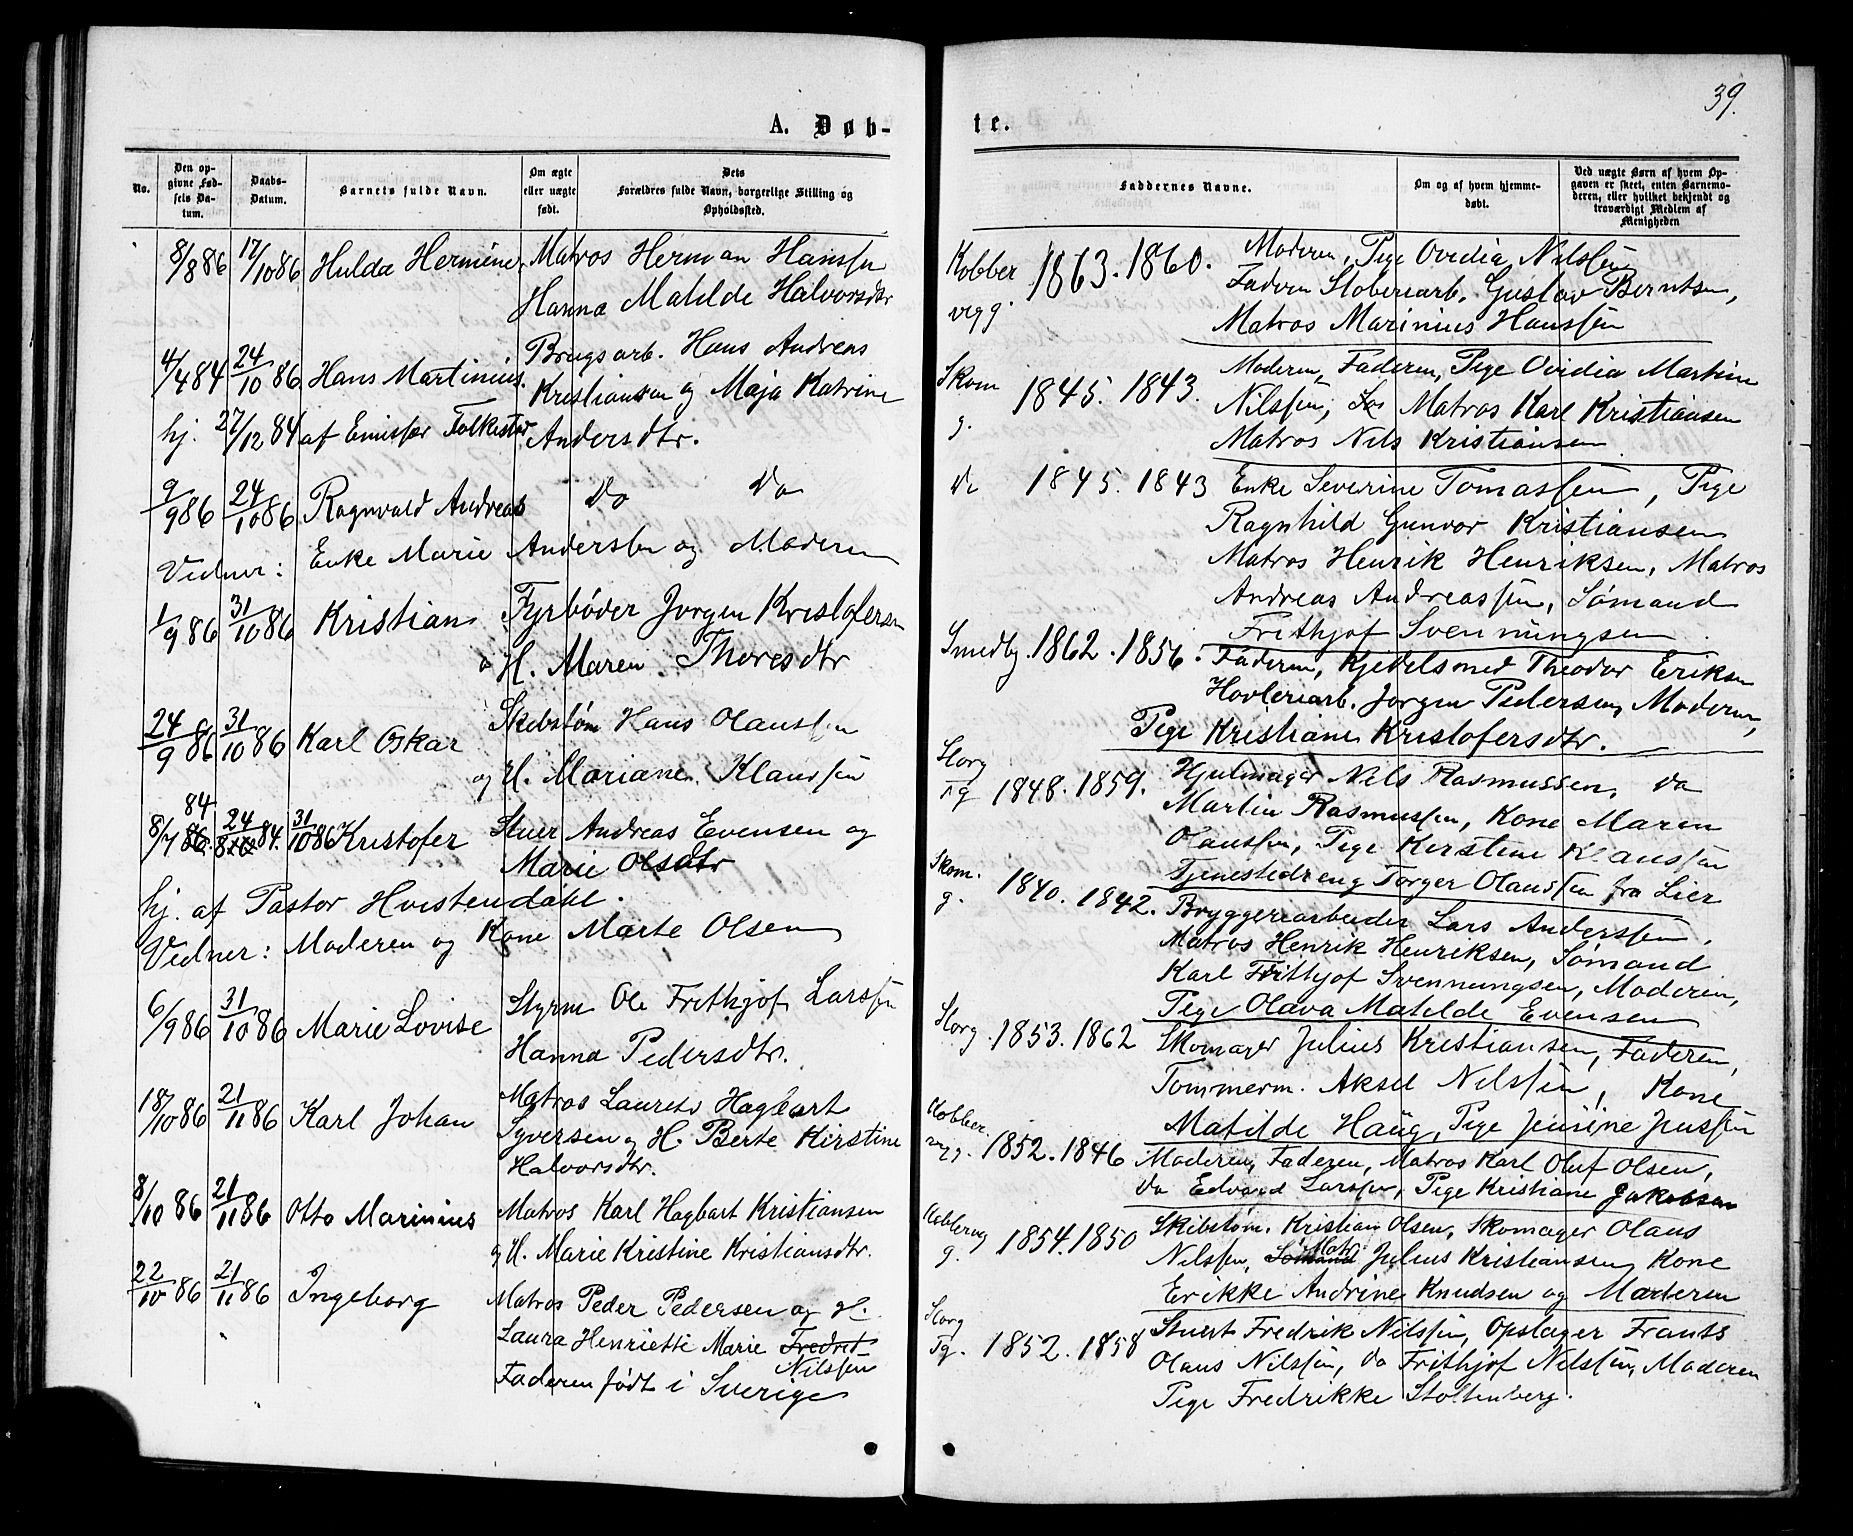 39.
A. Døb-
te.
No.
Den op-
givne Fød-
sels Da-
tum.
Daabs-
Datum.
Barnets fulde Navn.
Om ægte
eller uægte
født.
Dets
Forældres fulde Navn, borgerlige Stilling og
Opholdssted.
Faddernes Navne.
Om og af hvem hjemme-
døbt.
Ved uægte Børn af hvem Op-
gaven er skeet, enten Barnemo-
deren, eller hvilket bekjendt og
troværdigt Medlem af
Menigheden
8/8 86 17/10 86 Hulda Hermine Matros Herman Hanssen
Hanna Matilde Halvorsdtr
4/4 84 24/10 86 Hans Martinius. Brugsarb. Hans Andreas
Kristiansen og Maja Katrine
hj. 27/12 84 af Emissær Folkestad Andersdtr.
9/9 86 24/10 86 Ragnvald Andreas Do Do
Vidner: Enke Marie Anderssen og Moderen
1/9 86 31/10 86 Kristian Fyrbøder Jørgen Kristofersen
o H. Maren Thoresdtr
24/9 86 31/10 86 Karl Oskar Skibstøm Hans Olaussen
og H. Mariane Klaussen
84
8/7 86. 24/8 84. 31/10 86 Kristofer Stuer Andreas Evensen og
Marie Olsdtr
hj. af Pastor Hvistendahl.
Vidner: Moderen og Kone Marte Olsen
6/9 86 31/10 86 Marie Lovise Styrm Ole Frithjof Larssen
Hanna Pedersdtr.
18/10 86 21/11 86 Karl Johan Matros Laurets Hagbart
Syversen og H. Berte Kirstine
Halvorsdtr.
8/10 86 21/11 86 Otto Marinius Matros Karl Hagbart Kristiansen
og H. Marie Kristine Kristiansdtr.
22/10 86 21/11 86 Ingeborg Matros Peder Pedersen og H.
Laura Henriette Marie Fredrik
Nilssen
Faderen født i Sverige
Kobber 1863. 1860. Moderen, Pige Ovidia Nilssen
vigg Faderen Støberiarb. Gustav Berntsen,
Matros Marinius Hanssen
Skom 1845. 1843. Moderen, Faderen, Pige Ovidia Martine
g. Nilssen, Matros Karl Kristiansen
Matros Nils Kristiansen
Do 1845. 1843 Enke Severine Tomassen, Pige
Ragnhild Gunvor Kristiansen
Matros Henrik Henriksen, Matros
Andreas Andreassen, Sømand
Frithjof Svenningsen
Smedby. 1862. 1856. Faderen, Kjedelsmed Theodor Eriksen
Høvleriarb. Jørgen Pedersen, Moderen,
Pige Kristiane Kristofersdtr.
Storg Hjulmager Nils Rasmussen, Do
Tg 1848. 1859. Martin Rasmussen, Kone Maren
Olaussen, Pige Kirstine Klaussen
Tjenestedreng Torger Olaussen fra Lier
Skom. 1840. 1842. Bryggeriarbeider Lars Anderssen,
g. Matros Henrik Henriksen, Sømand
Karl Frithjof Svenningsen, Moderen,
Pige Olava Matilde Evensen
Storg. 1853. 1862 Skomager Julius Kristiansen, Faderen,
Tømmerm. Aksel Nilssen, Kone
Matilde Haug, Pige Jenine Jenssen
Kobber
vigg. 1852. 1846 Moderen, Faderen, Matros Karl Oluf Olsen,
Do Edvard Larssen, Pige Kristiane Jakobsen
Kobbervig Skibstøm. Kristian Olsen, Skomager Olaus
g. 1854. 1850 Nilssen, Sømand Matr. Julius Kristiansen, Kone
Erikke Andrine Knudsen og Moderen
Storg Stuert Fredrik Nilssen, Opslager Frants
Tg. 1852. 1858 Olaus Nilssen, Do Frithjof Nilssen, Moderen
Pige Fredrikke Stoltenberg.